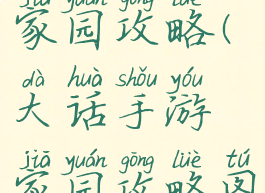 jiā yuán gōng lüè
家园攻略(
dà huà shǒu yóu
大话手游
jiā yuán gōng lüè tú
家园攻略图